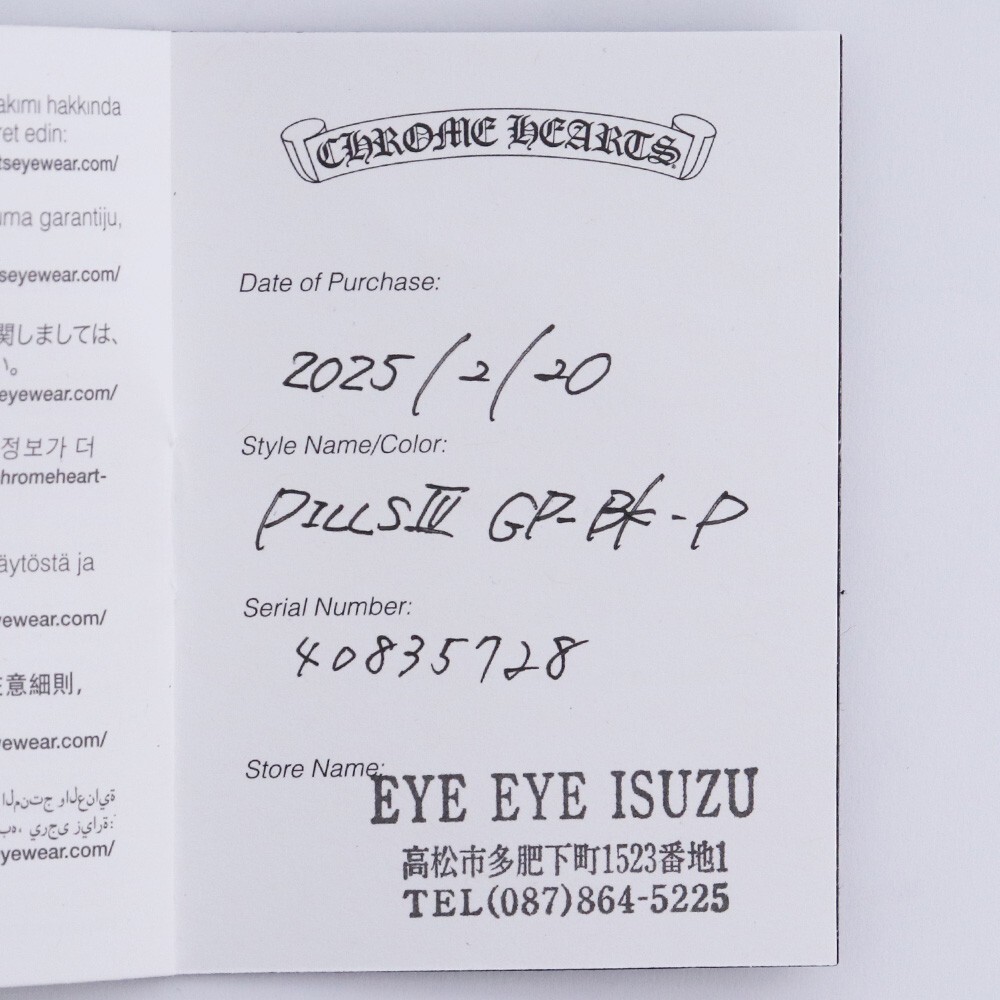 akımı hakkında
ret edin:
tseyewear.com/
uma garantiju,
seyewear.com/
関しましては、
い。
eyewear.com/
정보가 더
hromeheart-
äytöstä ja
ewear.com/
意細則,
ewear.com/
yewear.com/
CHROME HEARTS
Date of Purchase:
2025/2/20
Style Name/Color:
PILLS IV GP-BK-P
Serial Number:
40835728
Store Name:
EYE EYE ISUZU
高松市多肥下町1523番地1
TEL(087)864-5225